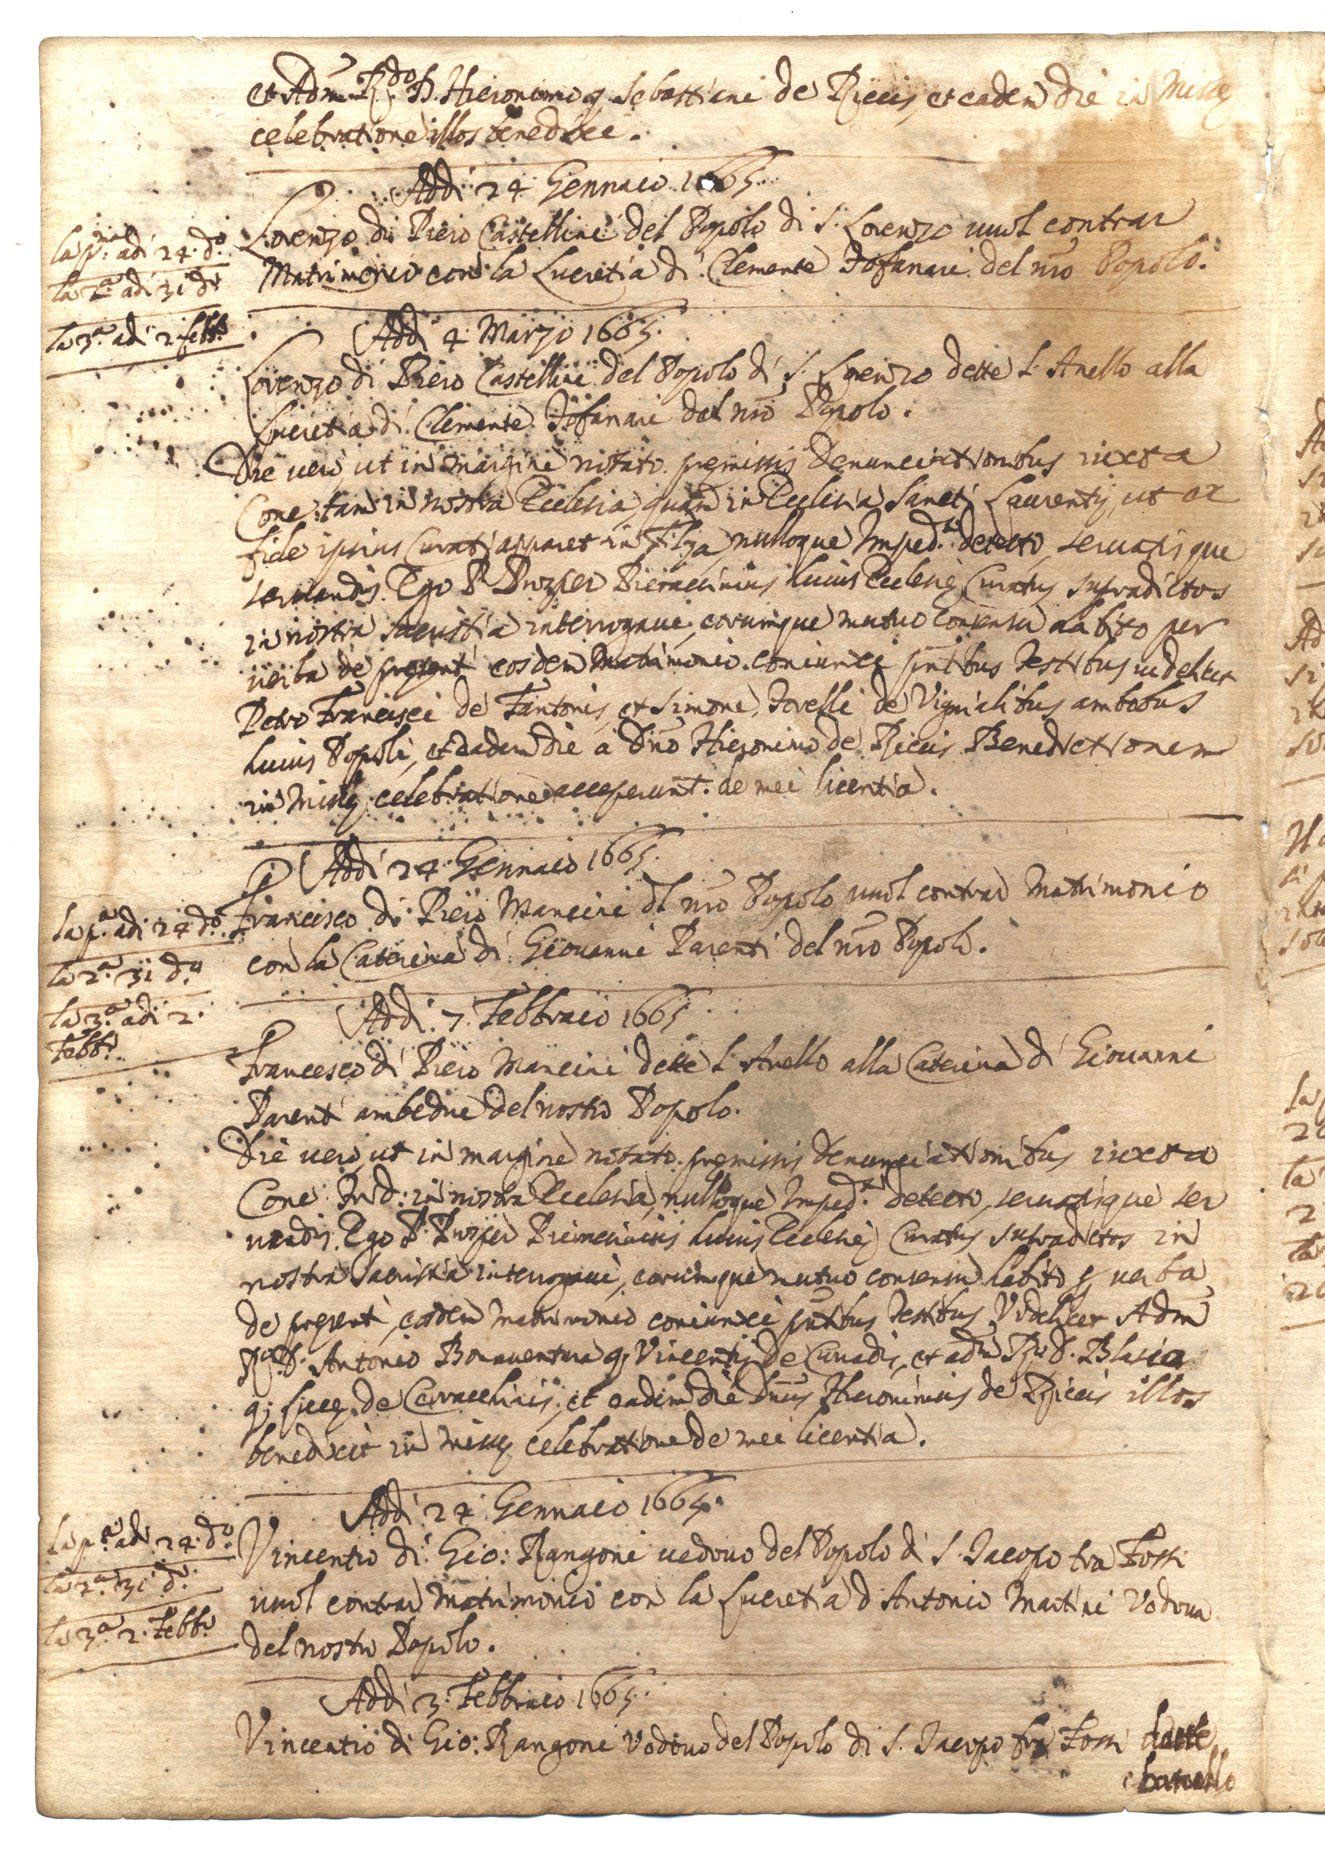 et Adm. R.do D. Hieronimo q. Sebastiani de Riccis, et eadem die in Missę
celebratione illos benedixi.
Addi 24 Gennaio 1665.
la p.ma adi 24 d.o
la 2.a adi 31 d.o
la 3.a adi 2 febb.o
Lorenzo di Piero Castellini del Popolo di S. Lorenzo vuol contrar
Matrimonio con la Lucretia di Clemente Tofanari del nro Popolo.
Addi 4 Marzo 1665.
Lorenzo di Piero Castellini del Popolo di S. Lorenzo dette l'Anello alla
Lucretia di Clemente Tofanari del nro Popolo.
Die vero, ut in margine notato, premissis denunciationibus iuxta
Conc. tam in nostra Ecclesia, quam in Ecclesia Sancti Laurentij, ut ex
fide ipsius Curati apparet in Filza, nulloque Imped.to detecto, servatisque
servandis. Ego P. Prosper Pieraccinius huius Ecclesię Curatus supradictos
in nostra sacristia interrogavi, eorumque mutuo consensu habito per
verba de presenti eosdem Matrimonio coniunxi pntibus testibus videlicet
Petro Francisci de Fantonis, et Simone Iovelli de Vignalibus ambobus
huius Popoli, et eadem die a Dno Hieronimo de Riccis Benedictionem
in Missę celebratione acceperunt de mei licentia.
Addi 24 Gennaio 1665.
la p.a adi 24 d.o
la 2.a 31 d.o
la 3.a adi 2.
Febb.o
Francesco di Piero Mancini del nro Popolo vuol contrar Matrimonio
con la Caterina di Giovanni Parenti del nro Popolo.
Addi 7 Febbraio 1665
Francesco di Piero Mancini dette l'Anello alla Caterina di Giovanni
Parenti ambedue del nostro Popolo.
Die vero, ut in margine notato, premissis denunciationibus iuxta
Conc. Trid: in nostra Ecclesia, nulloque Imped.to detecto, servatisque ser
vandis. Ego P. Prosper Pieraccinius huius Ecclesię Curatus supradictos in
nostra sacristia interrogavi, eorumque mutuo consensu habito p verba
de presenti, eosdem matrimonio coniunxi pntibus testibus, Videlicet Adm
R.do D. Antonio Bonaventura q. Vincentij de Curradis, et adm R. D. Blasio
q. de et eadem die Dnus Hieronimus de Riccis illos
benedixit in Missę celebratione de mei licentia.
Addi 24 Gennaio 1665.
la p.a adi 24 d.o
la 2.a 31 d.o
la 3.a 2 Febb.o
Vincentio di Gio: Rangoni vedovo del Popolo di S. Iacopo tra Fossi
vuol contrar Matrimonio con la Lucretia d'Antonio Martini Vedova
del nostro Popolo.
Addi 3 Febbraio 1665.
Vincentio di Gio: Rangoni Vedovo del Popolo di S. Iacopo fra Fossi dette